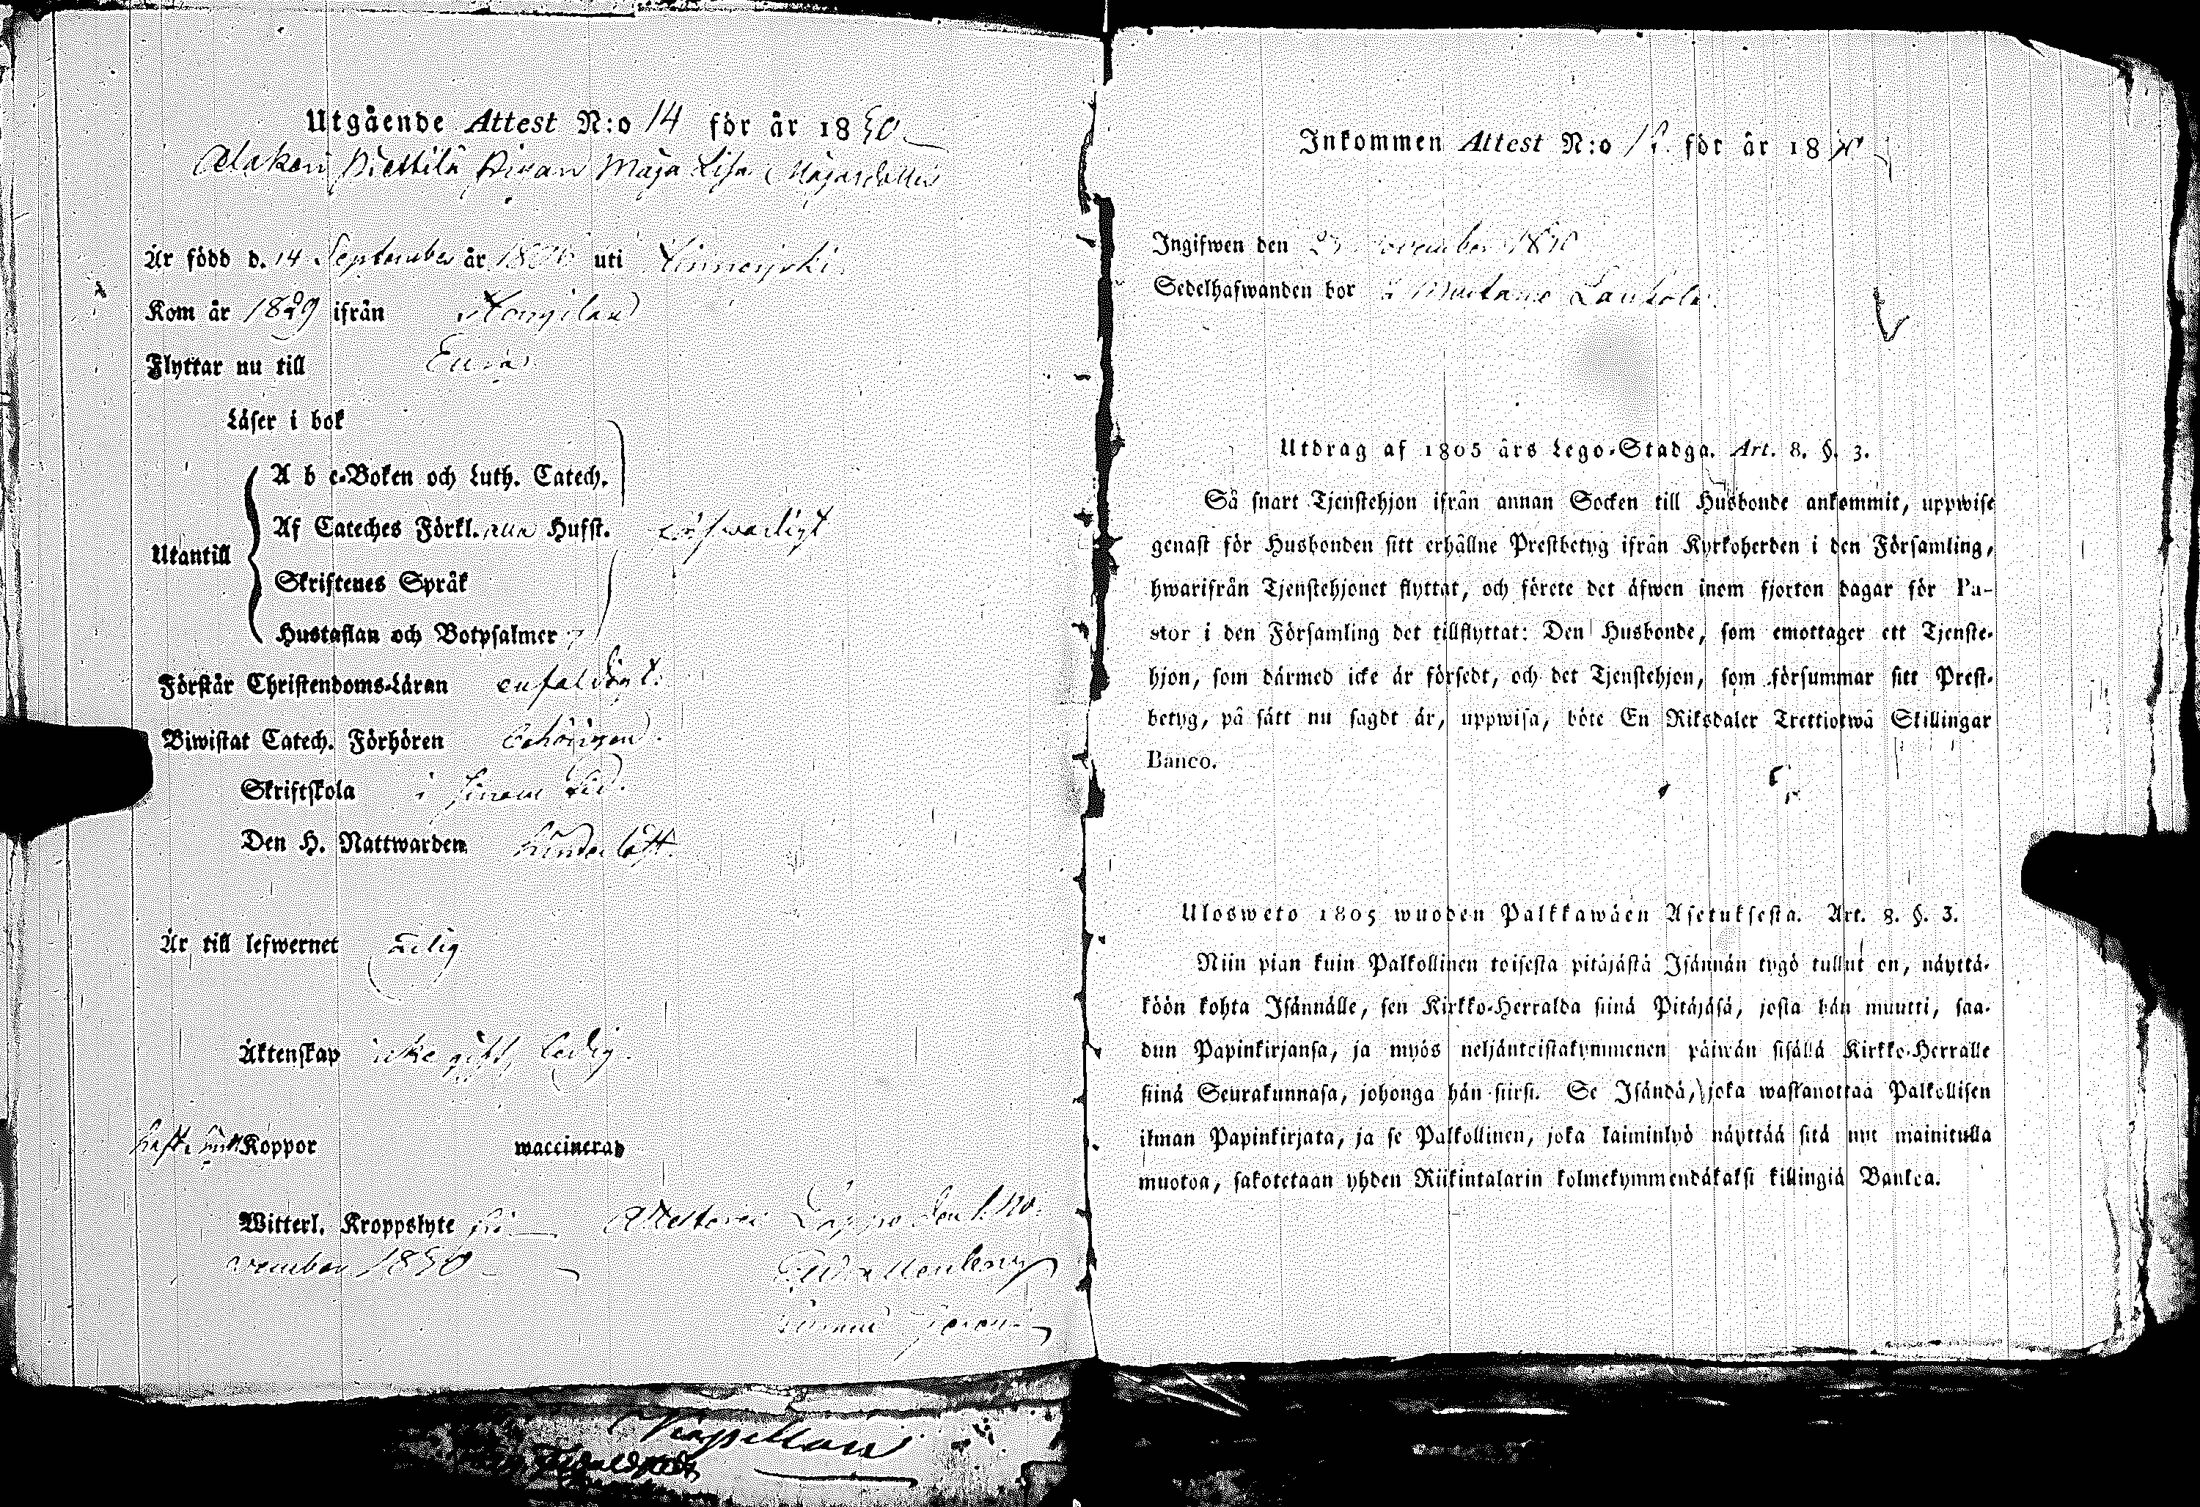 Utgående Attest N:o 14 för år 1830
Alakeri Prettilä Pigan Maja Lisa Majasdotter
Är född d. 14 September år uti
Kom år 1829 ifrån
Flyttar nu till Eura
Läser i bok
A b c-Boken och Luth. Catech.
Af Cateches Förkl. Husst.
Utantill
Skriftenes Språk
Hustaflan och Botpsalmer
Förstår Christendoms-Läran enfaldigt.
Biwistat Catech. Förhören behörigen.
Skriftskola i sinom tid.
Den H. Nattwarden
Är till lefwernet
Äktenskap icke gift, ledig.
haft Koppor waccinerad
Witterl. Kroppslyte Attesterar Lappo den 1. No-
vember 1830
Inkommen Attest N:o för år 18
Ingifwen den November
Sedelhafwanden bor
Utdrag af 1805 års Lego-Stadga. Art. 8. §. 3.
Så snart Tjenstehjon ifrån annan Socken till Husbonde ankommit, uppwise
genast för Husbonden sitt erhållne Prestbetyg ifrån Kyrkoherden i den Församling,
hwarifrån Tjenstehjonet flyttat, och förete det äfwen inom fjorton dagar för Pa-
stor i den Församling det tillflyttat: Den Husbonde, som emottager ett Tjenste-
hjon, som därmed icke är försedt, och det Tjenstehjon, som försummar sitt Prest-
betyg, på sätt nu sagdt är, uppwisa, böte En Riksdaler Trettiotwå Skillingar
Banco.
Ulosweto 1805 wuoden Palkkawäen Asetuksesta. Art. 8. §. 3.
Niin pian kuin Palkollinen toisesta pitäjästä Isännän tygö tullut on, näyttä-
köön kohta Isännälle, sen Kirkko-Herralda siinä Pitäjäsä, josta hän muutti, saa-
dun Papinkirjansa, ja myös neljänteistakymmenen päiwän sisällä Kirkko-Herralle
siinä Seurakunnasa, johonga hän siirsi. Se Isändä, joka wastanottaa Palkollisen
ilman Papinkirjata, ja se Palkollinen, joka laiminlyö näyttää sitä nyt mainitulla
muotoa, sakotetaan yhden Riikintalarin kolmekymmendäkaksi killingiä Bankoa.